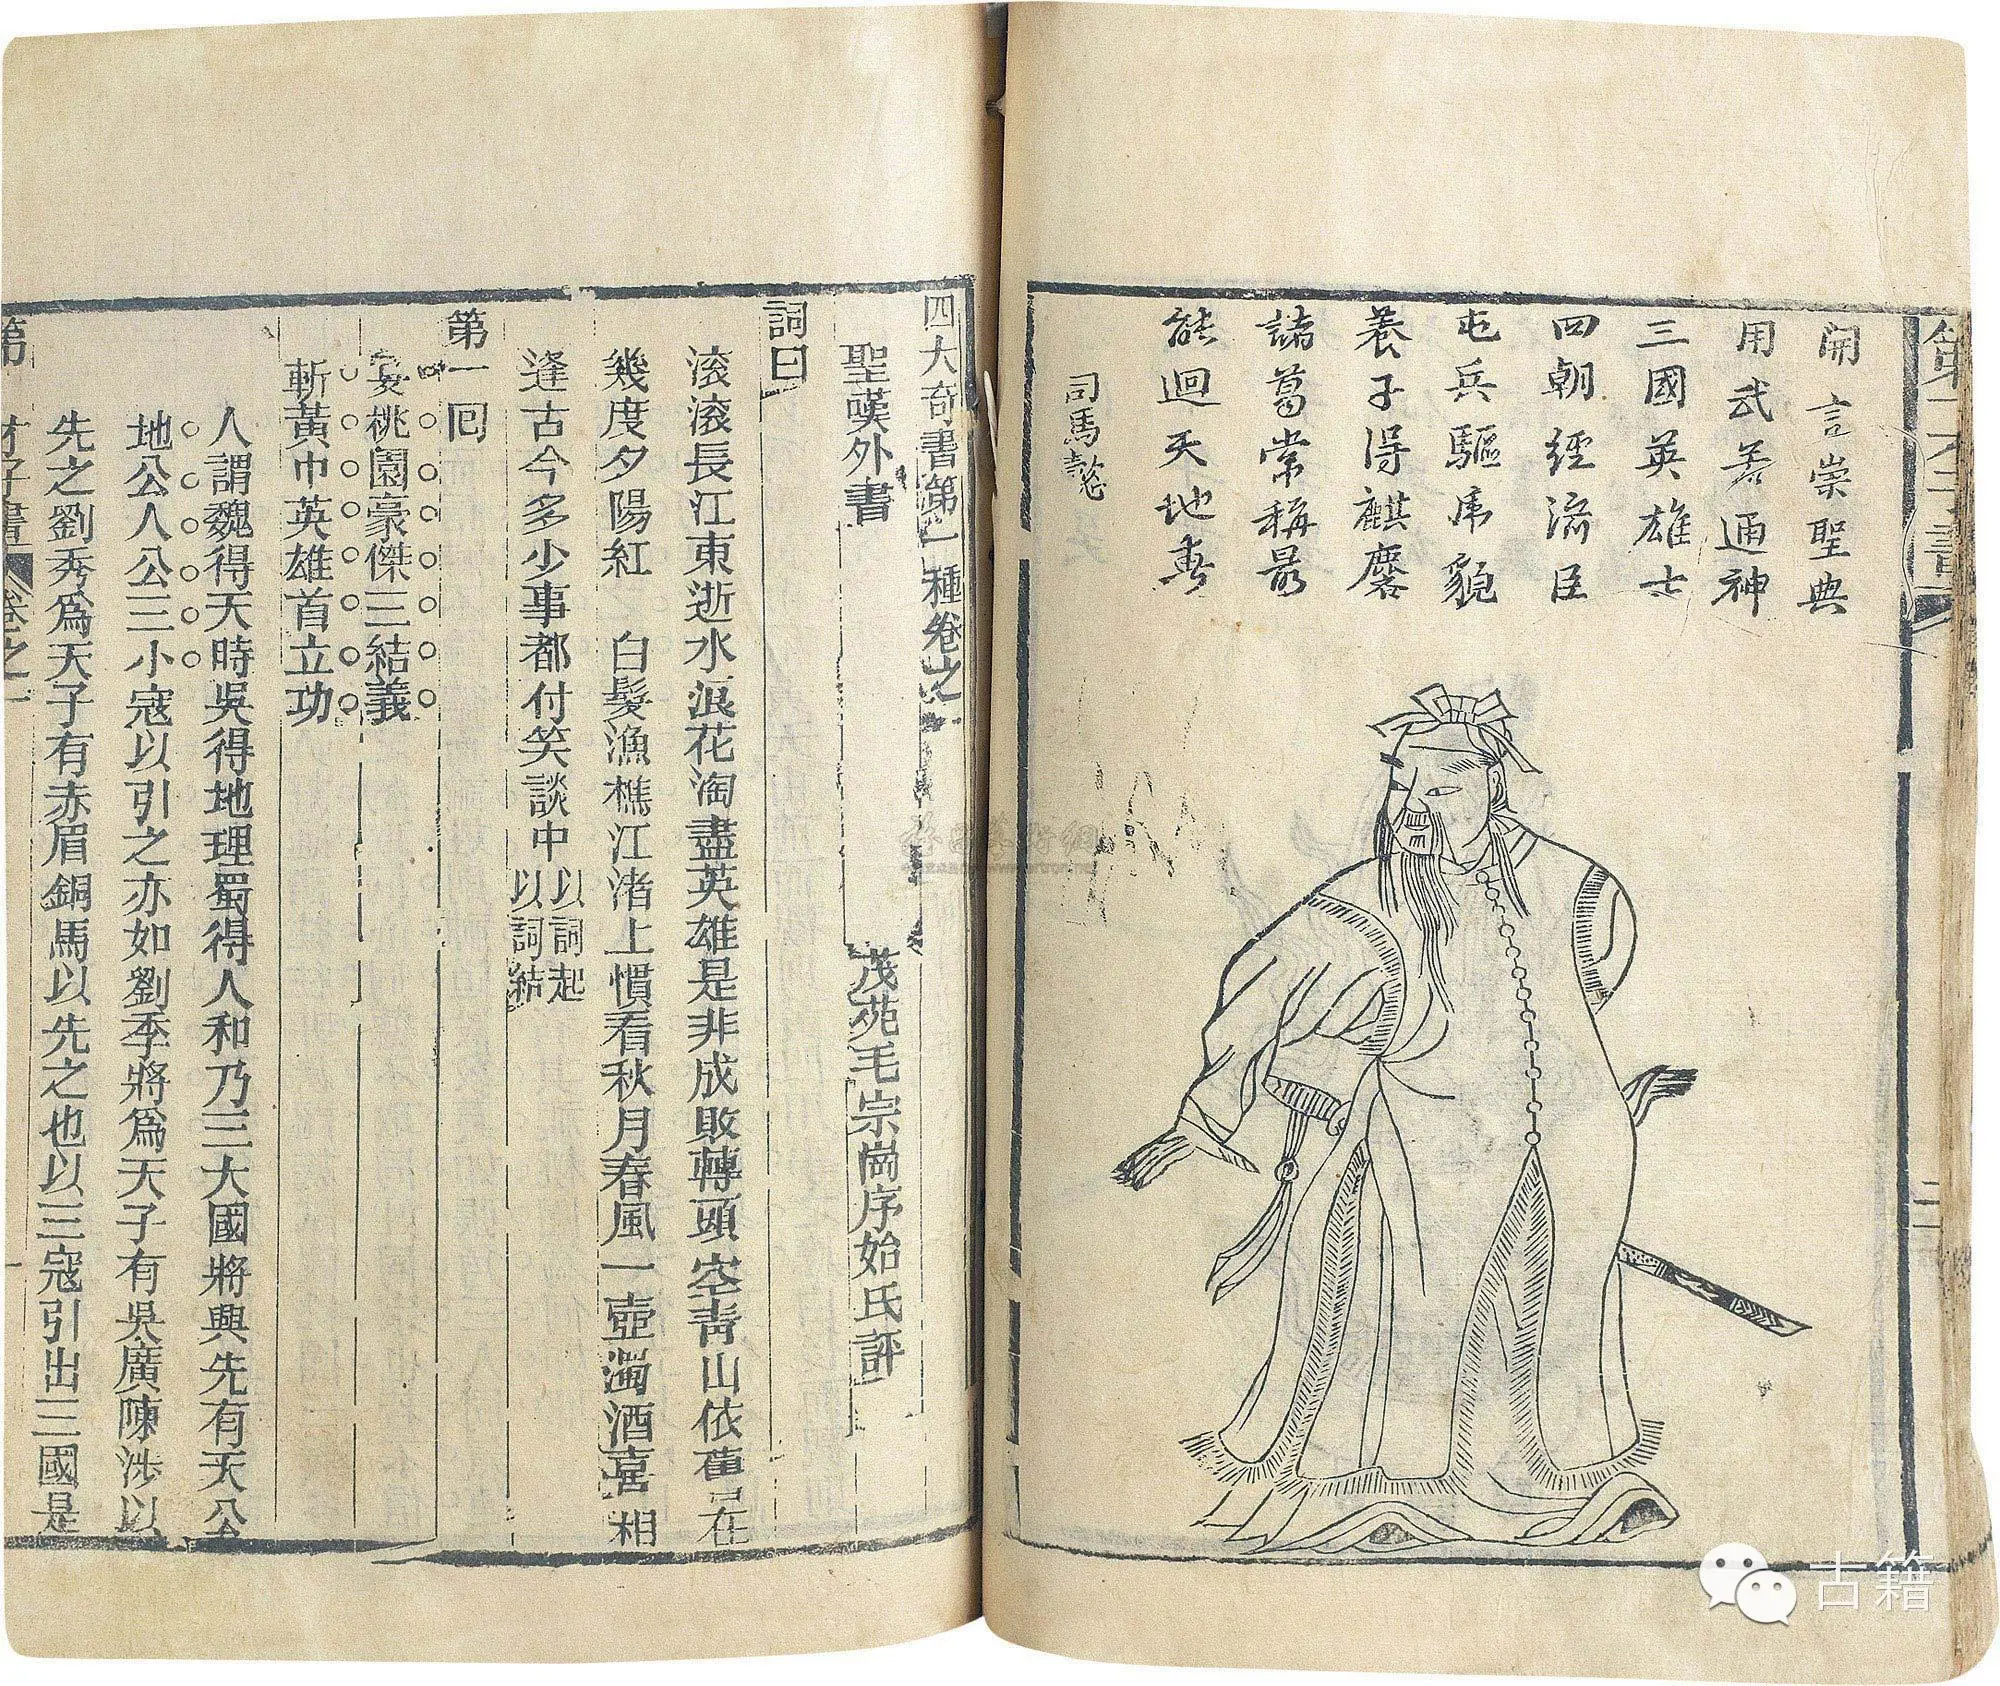 開言崇聖典
用武若通神
三國英雄士
四朝經流臣
屯兵驅虎豹
養子得麒麐
諸葛常稱最
能迴天地春
司馬懿
二
四大奇書第一種卷之一
聖嘆外書
茂苑毛宗崗序始氏評
詞曰
滾滾長江東逝水浪花淘盡英雄是非成敗轉頭空青山依舊在
幾度夕陽紅 白髮漁樵江渚上慣看秋月春風一壺濁酒喜相
逢古今多少事都付笑談中
以詞起
以詞結
第一回
宴桃園豪傑三結義
斬黃巾英雄首立功
人謂魏得天時吳得地理蜀得人和乃三大國將興先有天公
地公人公三小寇以引之亦如劉季將爲天子有吳廣陳涉以
先之劉秀爲天子有赤眉銅馬以先之也以三寇引出三國是
第一才子書
卷之一
古籍